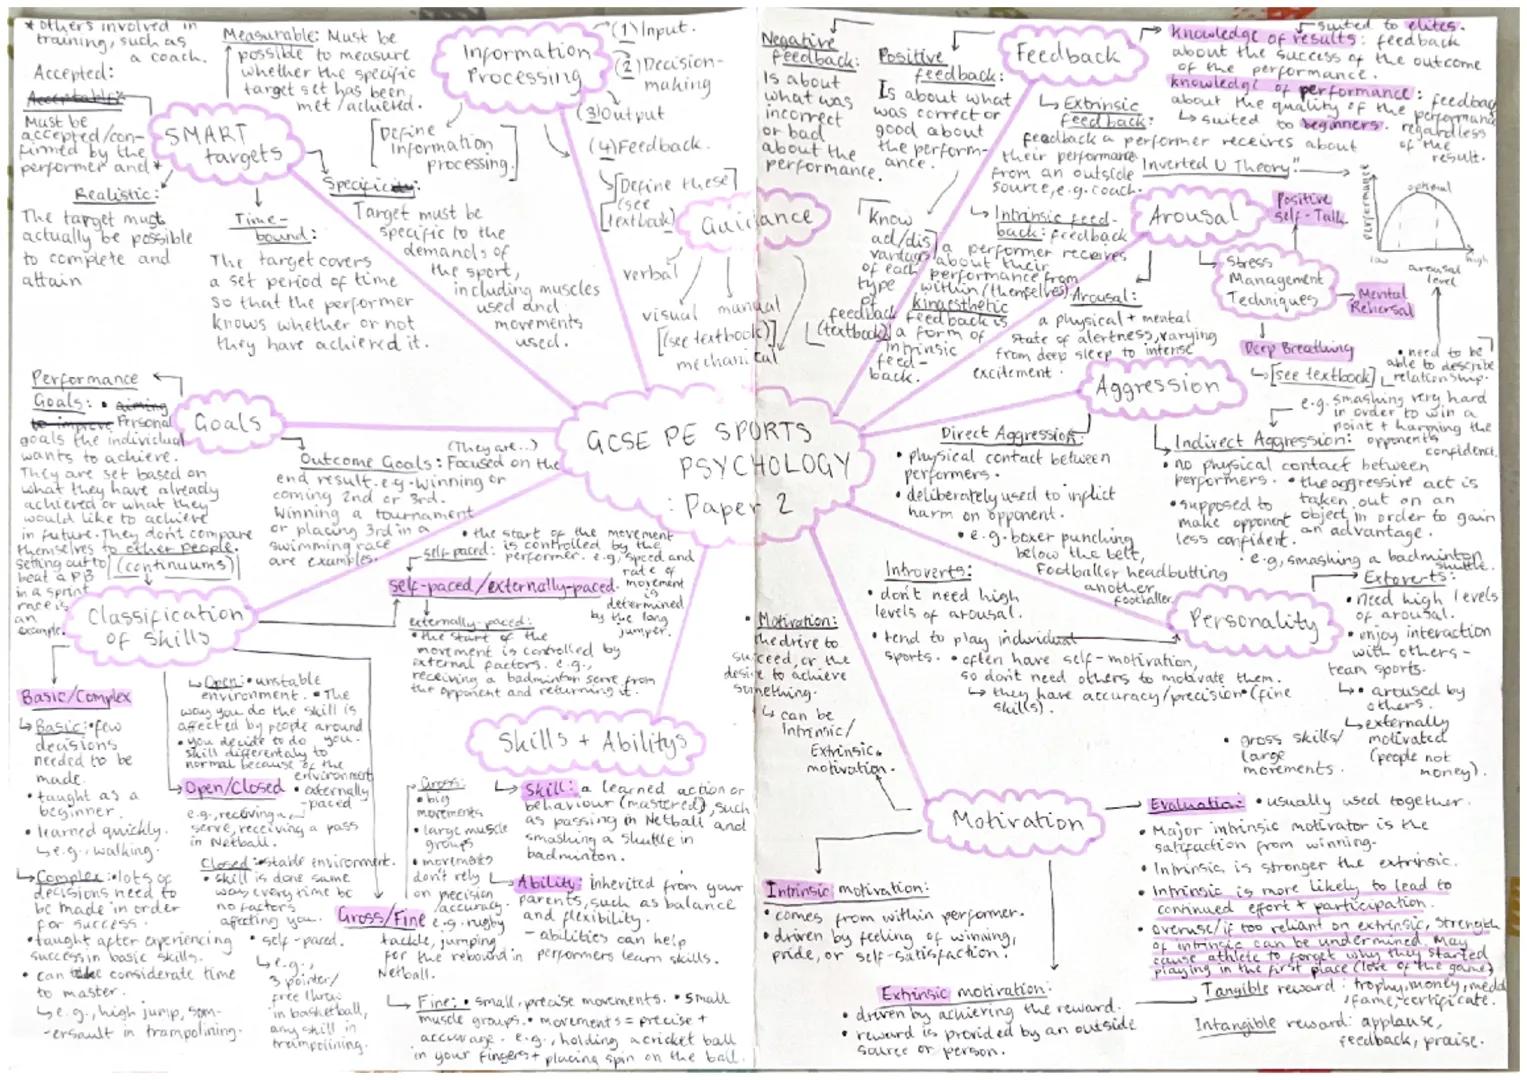 GCSE PE SPORTS
PSYCHOLOGY
: Paper 2
SMART
targets
* Others involved in
training, such as
a coach.
Accepted:
Must be
accepted/con-
firmed by the
performer and *
Measurable: Must be
possible to measure
whether the specific
target set has been
met / achieved.
Realistic:
The target must
actually be possible
to complete and
attain
Time-
bound:
The target covers
a set period of time
so that the performer
knows whether or not
they have achieved it.
Specific:
Target must be
specific to the
demands of
the sport,
including muscles
used and
movements
used.
Information
Processing
[Define
information
processing.]
(1) Input.
(2) Decision-
making
(3) Output
(4) Feedback.
[Define these]
(see
textbook)
Guidance
verbal
visual manual
[(see textbook)]
mechanical
Feedback
Negative
feedback:
Is about
what was
incorrect
or bad
about the
performance.
Positive
feedback:
Is about what
was correct or
good about
the perform-
ance.
suited to elites.
Knowledge of results: feedback
about the success of the outcome
of the performance.
knowledge of performance: feedback
about the quality of the performance
↳ suited to beginners. regardless
of the
result.
↳ Extrinsic
feedback:
feedback a performer receives about
their performance
from an outside
source, e.g. coach.
↳ Intrinsic feed-
back: feedback
a performer receives
about their
performance from
within/(themselves)
kinaesthetic
feedback is
a form of
Intrinsic
feed-
back.
[know
ad/dis
vantages
of each
type
of
feedback
(textbook)]
Arousal
"Inverted U Theory"
performance
optimal
low
high
arousal
level
• need to be
able to describe
relationship.
Positive
self-Talk
Stress
Management
Techniques
Mental
Rehersal
Deep Breathing
↳ [see textbook]
Arousal:
a physical + mental
state of alertness, varying
from deep sleep to intense
excitement.
Aggression
Direct Aggression:
• physical contact between
performers.
• deliberately used to inflict
harm on opponent.
• e.g. boxer punching
below the belt,
Footballer headbutting
another
footballer
e.g. smashing very hard
in order to win a
point + harming the
opponents
confidence.
Indirect Aggression:
• no physical contact between
performers. • the aggressive act is
taken out on an
object in order to gain
an advantage.
• supposed to
make opponent
less confident.
• e.g, smashing a badminton
shuttle.
Personality
Introverts:
• don't need high
levels of arousal.
• tend to play individual
sports. • often have self-motivation,
so don't need others to motivate them.
↳ they have accuracy/precision (fine
skills).
Extoverts:
• need high levels
of arousal.
• enjoy interaction
with others -
team sports.
↳ • aroused by
others.
↳ externally
motivated
(people not
money).
• gross skills/
large
movements.
Motivation
• Motivation:
the drive to
succeed, or the
desire to achieve
something.
↳ can be
Intrinsic/
Extrinsic
motivation.
Intrinsic motivation:
• comes from within performer.
• driven by feeling of winning,
pride, or self-satisfaction.
Extrinsic motivation:
• driven by achieving the reward.
• reward is provided by an outside
source or person.
Evaluation: • usually used together.
• Major intrinsic motivator is the
satifaction from winning.
• Intrinsic is stronger the extrinsic.
• Intrinsic is more likely to lead to
continued efort + participation.
• overuse/if too reliant on extrinsic, strength
of intrinsic can be undermined. May
cause athlete to forget why they started
playing in the first place (love of the game)
Tangible reward: trophy, money,
fame, certificate.
Intangible reward: applause,
feedback, praise.
Goals
Performance
Goals: • aiming
to improve Personal
goals the individual
wants to achieve.
They are set based on
what they have already
achieved or what they
would like to achieve
in future. They don't compare
themselves to other people.
setting out to
beat a PB
in a sprint
race is
an
example.
(They are...)
Outcome Goals: Focused on the
end result. e.g. winning or
coming 2nd or 3rd.
Winning a tournament
or placing 3rd in a
swimming race
are examples.
Classification
of Skills
(continuums)
self-paced/externally-paced.
self paced:
• the start of the movement
is controlled by the
performer. e.g, speed and
rate of
movement
is
determined
by the long
jumper.
externally-paced:
• the start of the
movement is controlled by
external factors. e.g.,
receiving a badminton serve from
the opponent and returning it.
Basic/Complex
↳ Basic: • few
decisions
needed to be
made.
• taught as a
beginner.
• learned quickly.
↳ e.g., walking.
↳ Complex: • lots of
decisions need to
be made in order
for success.
• taught after experiencing
success in basic skills.
• can take considerate time
to master.
↳ e.g., high jump, som-
-ersault in trampolining.
↳ Open: • unstable
environment. • The
way you do the skill is
affected by people around
you.
• you decide to do
skill differentaly to
normal because of the
environment
Open/Closed
• externally
-paced
e.g., receiving a
serve, receiving a pass
in Netball.
Closed: • stable environment.
• skill is done same
way every time bc
no factors
affecting you.
• self-paced.
↳ e.g.,
3 pointer/
free throw
in basketball,
any skill in
trampolining.
Gross/Fine
Gross:
• big
movements
• large muscle
groups
• movements
don't rely
on precision
/accuracy.
e.g. rugby
tackle, jumping
for the rebound in
Netball.
↳ Fine: • small, precise movements. • small
muscle groups. • movements = precise +
accurage. e.g., holding a cricket ball
in your fingers + placing spin on the ball.
Skills + Abilitys
↳ Skill: a learned action or
behaviour (mastered), such
as passing in Netball and
smashing a shuttle in
badminton.
↳ Ability: inherited from your
parents, such as balance
and flexibility.
- abilities can help
performers learn skills.